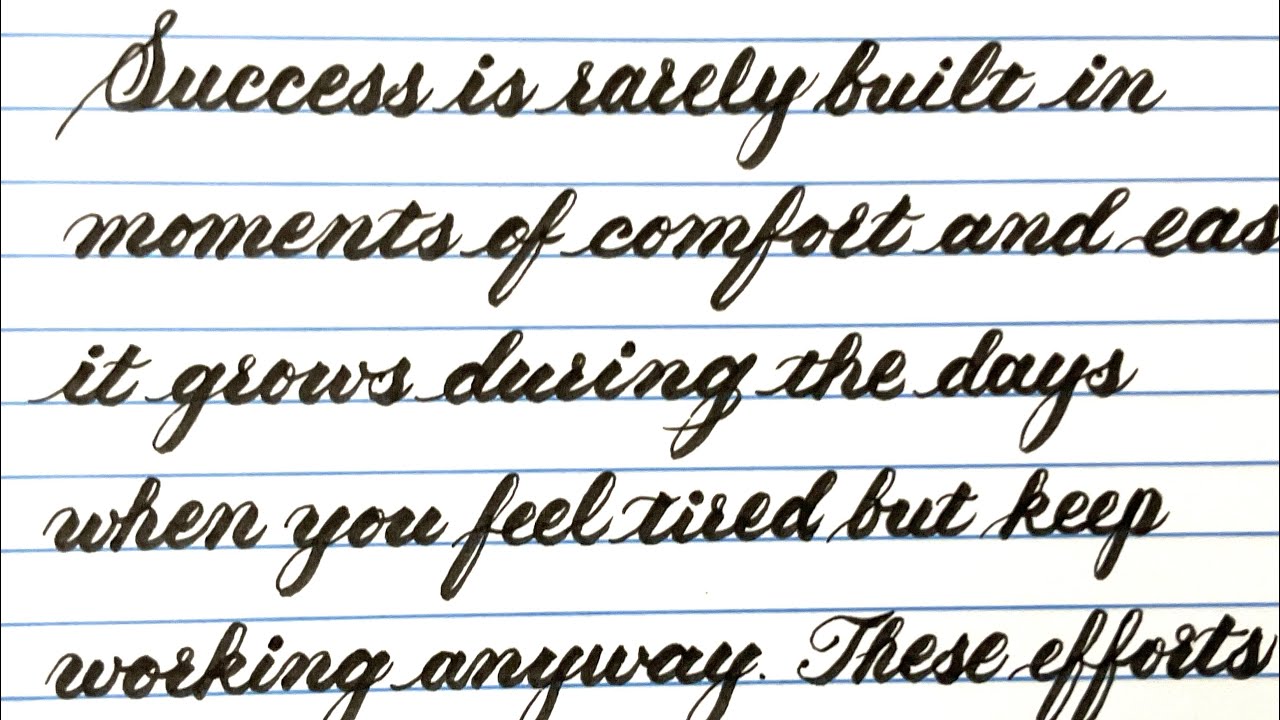 Success is rarely built in
moments of comfort and eas
it grows during the days
when you feel tired but keep
working anyway. These efforts